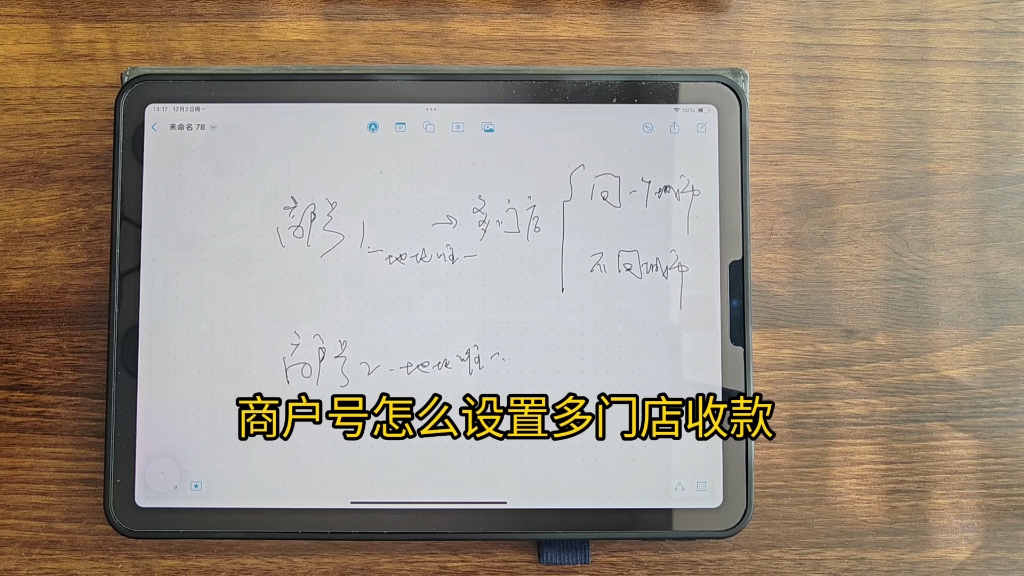 13:17 12月2日周一
50%
未命名 78
商户号1 → 多门店
地址唯一
同一个城市
不同城市
商户号2 地址唯一
商户号怎么设置多门店收款